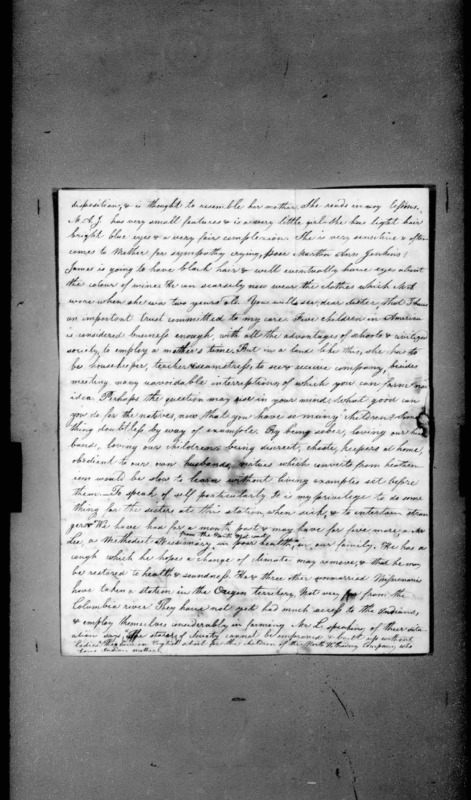 disposition, & is thought to resemble her mother. She reads in easy lessons.
M. A. J. has very small features & is a very little girl. She has light hair
bright blue eyes & a very fair complexion. She is very sensitive & often
comes to Mother for sympathy crying, poor Martha Ann Jenkins!
James is going to have black hair & will eventually have eyes about
the colour of mine. He can scarcely now wear the clothes which M A
wore when she was two years old. You will see, dear sister, that I have
an important trust committed to my care. Five children in America
is considered business enough, with all the advantages of schools & civilized
society, to employ a mother's time. But in a land like this, she has to
be housekeeper, teacher & seamstress, to see & receive company, besides
meeting many unavoidable interruptions of which you can form no
idea. Perhaps the question may rise in your mind, What good can
you do for the natives, now that you have so many children? Some
thing doubtless by way of example. By being sober, loving our hus
bands, loving our children, being discreet, chaste, keepers at home,
obedient to our own husbands, virtues which converts from heathen
ism would be slow to learn without living examples set before
them. To speak of self particularly. It is my privilege to do some
thing for the sisters at this station, when sick, & to entertain stran
gers. We have had for a month past & may have for five more, a Mr
Lee, a Methodist Missionary from the North West coast in poor health, in our family. He has a
cough which he hopes a change of climate may remove, & that he may
be restored to health & soundness. He & three other unmarried Missionaries
have taken a station in the Oregon territory, not very far from the
Columbia river. They have not yet had much access to the Indians,
& employ themselves considerably in farming. Mr L. speaking of their situ
ation says, the state of society cannot be improved & built up without
ladies. They have an English school for the children of the North W. Trading Company, who
have Indian mothers.